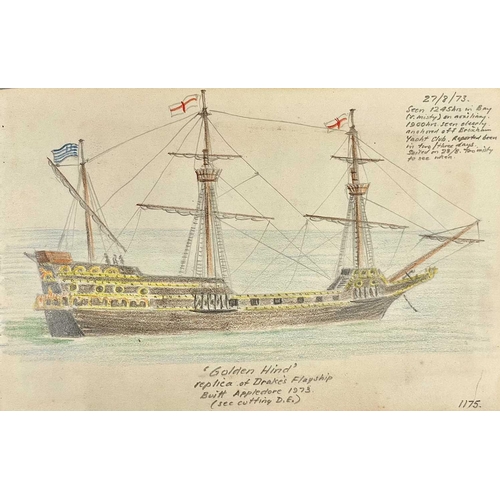 27/8/73.
Seen 1245hrs in Bay
(V. misty) on auxiliary.
1900hrs. seen clearly
anchored off Brixham
Yacht Club. Reported been
in Tory two/three days.
Sailed on 28/8. Too misty
to see when
"Golden Hind"
replica of Drake's Flagship
Built Appledore 1973.
(see cutting D.E.)
1175.